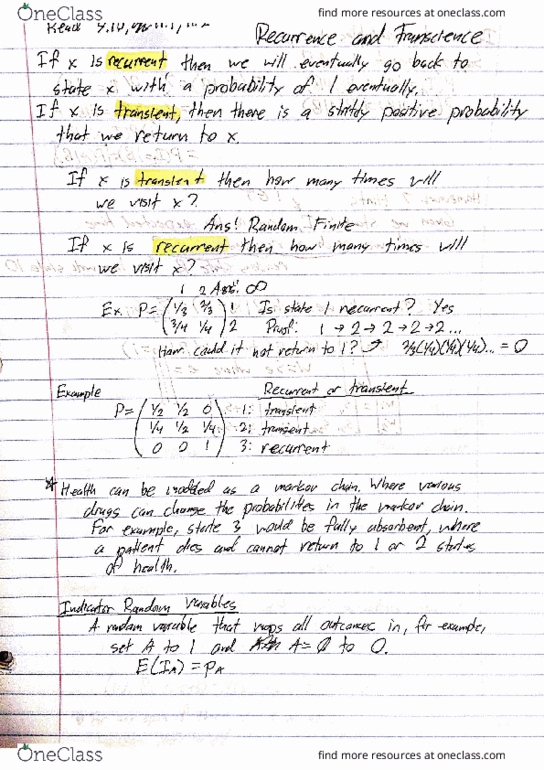 OneClass
find more resources at oneclass.com
Read 4.10,
Recurrence and Transcience
If x is recurrent then we will eventually go back to
state x with a probability of 1 eventually.
If x is transient, then there is a strictly positive probability
that we return to x.
If x is transient then how many times will
we visit x?
Ans! Random Finite
If x is recurrent then how many times will
we visit x?
Ans: ∞
1 2
Ex. P= (1/3 2/3) 1 Is state 1 recurrent? Yes
(3/4 1/4) 2 Proof: 1 → 2 → 2 → 2 → 2...
How could it not return to 1? 2/3(1/4)(1/4)(1/4)... = 0
Example Recurrent or transient
P= (1/2 1/2 0) 1: transient
(1/4 1/2 1/4) 2: transient
(0 0 1) 3: recurrent
* Health can be modded as a markov chain. Where various
drugs can change the probabilities in the markov chain.
For example, state 3 would be fully absorbent, where
a patient dies and cannot return to 1 or 2 states
of health.
Indicator Random Variables
A random variable that maps all outcomes in, for example,
set A to 1 and A=∅ to 0.
E(I_A) = p_A
OneClass
find more resources at oneclass.com